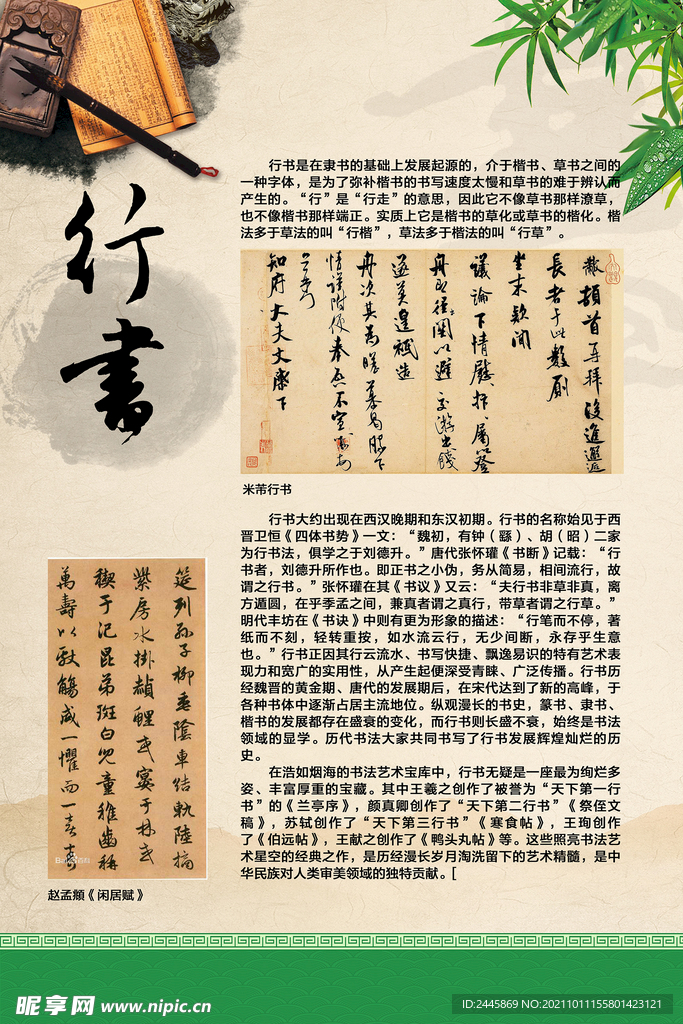 行書
行书是在隶书的基础上发展起源的，介于楷书、草书之间的
一种字体，是为了弥补楷书的书写速度太慢和草书的难于辨认而
产生的。“行”是“行走”的意思，因此它不像草书那样潦草，
也不像楷书那样端正。实质上它是楷书的草化或草书的楷化。楷
法多于草法的叫“行楷”，草法多于楷法的叫“行草”。
黻頓首再拜後進邂逅
長者于此數厕
坐末款闻
議論下情慰抃屬以登
舟即徑闗以避交游出餞
遂莫遑祗造
舟次其為瞻慕易勝下
情謹附便奉啓不宣黻
知府大夫丈席下
米芾行书
行书大约出现在西汉晚期和东汉初期。行书的名称始见于西
晋卫恒《四体书势》一文：“魏初，有钟（繇）、胡（昭）二家
为行书法，俱学之于刘德升。”唐代张怀瓘《书断》记载：“行
书者，刘德升所作也。即正书之小伪，务从简易，相间流行，故
谓之行书。”张怀瓘在其《书议》又云：“夫行书非草非真，离
方遁圆，在乎季孟之间，兼真者谓之真行，带草者谓之行草。”
明代丰坊在《书诀》中则有更为形象的描述：“行笔而不停，著
纸而不刻，轻转重按，如水流云行，无少间断，永存乎生意
也。”行书正因其行云流水、书写快捷、飘逸易识的特有艺术表
现力和宽广的实用性，从产生起便深受青睐、广泛传播。行书历
经魏晋的黄金期、唐代的发展期后，在宋代达到了新的高峰，于
各种书体中逐渐占居主流地位。纵观漫长的书史，篆书、隶书、
楷书的发展都存在盛衰的变化，而行书则长盛不衰，始终是书法
领域的显学。历代书法大家共同书写了行书发展辉煌灿烂的历
史。
在浩如烟海的书法艺术宝库中，行书无疑是一座最为绚烂多
姿、丰富厚重的宝藏。其中王羲之创作了被誉为“天下第一行
书”的《兰亭序》，颜真卿创作了“天下第二行书”《祭侄文
稿》，苏轼创作了“天下第三行书”《寒食帖》，王珣创作
了《伯远帖》，王献之创作了《鸭头丸帖》等。这些照亮书法艺
术星空的经典之作，是历经漫长岁月淘洗留下的艺术精髓，是中
华民族对人类审美领域的独特贡献。[
筵列孙子柳垂陰車结軌陸摘
紫房水掛赬鯉或宴于林或
禊于汜昆弟斑白兒童稚齒稱
萬壽以獻觴咸一懼而一喜壽
赵孟頫《闲居赋》
昵享网 www.nipic.cn
ID:2445869 NO:20211011155801423121